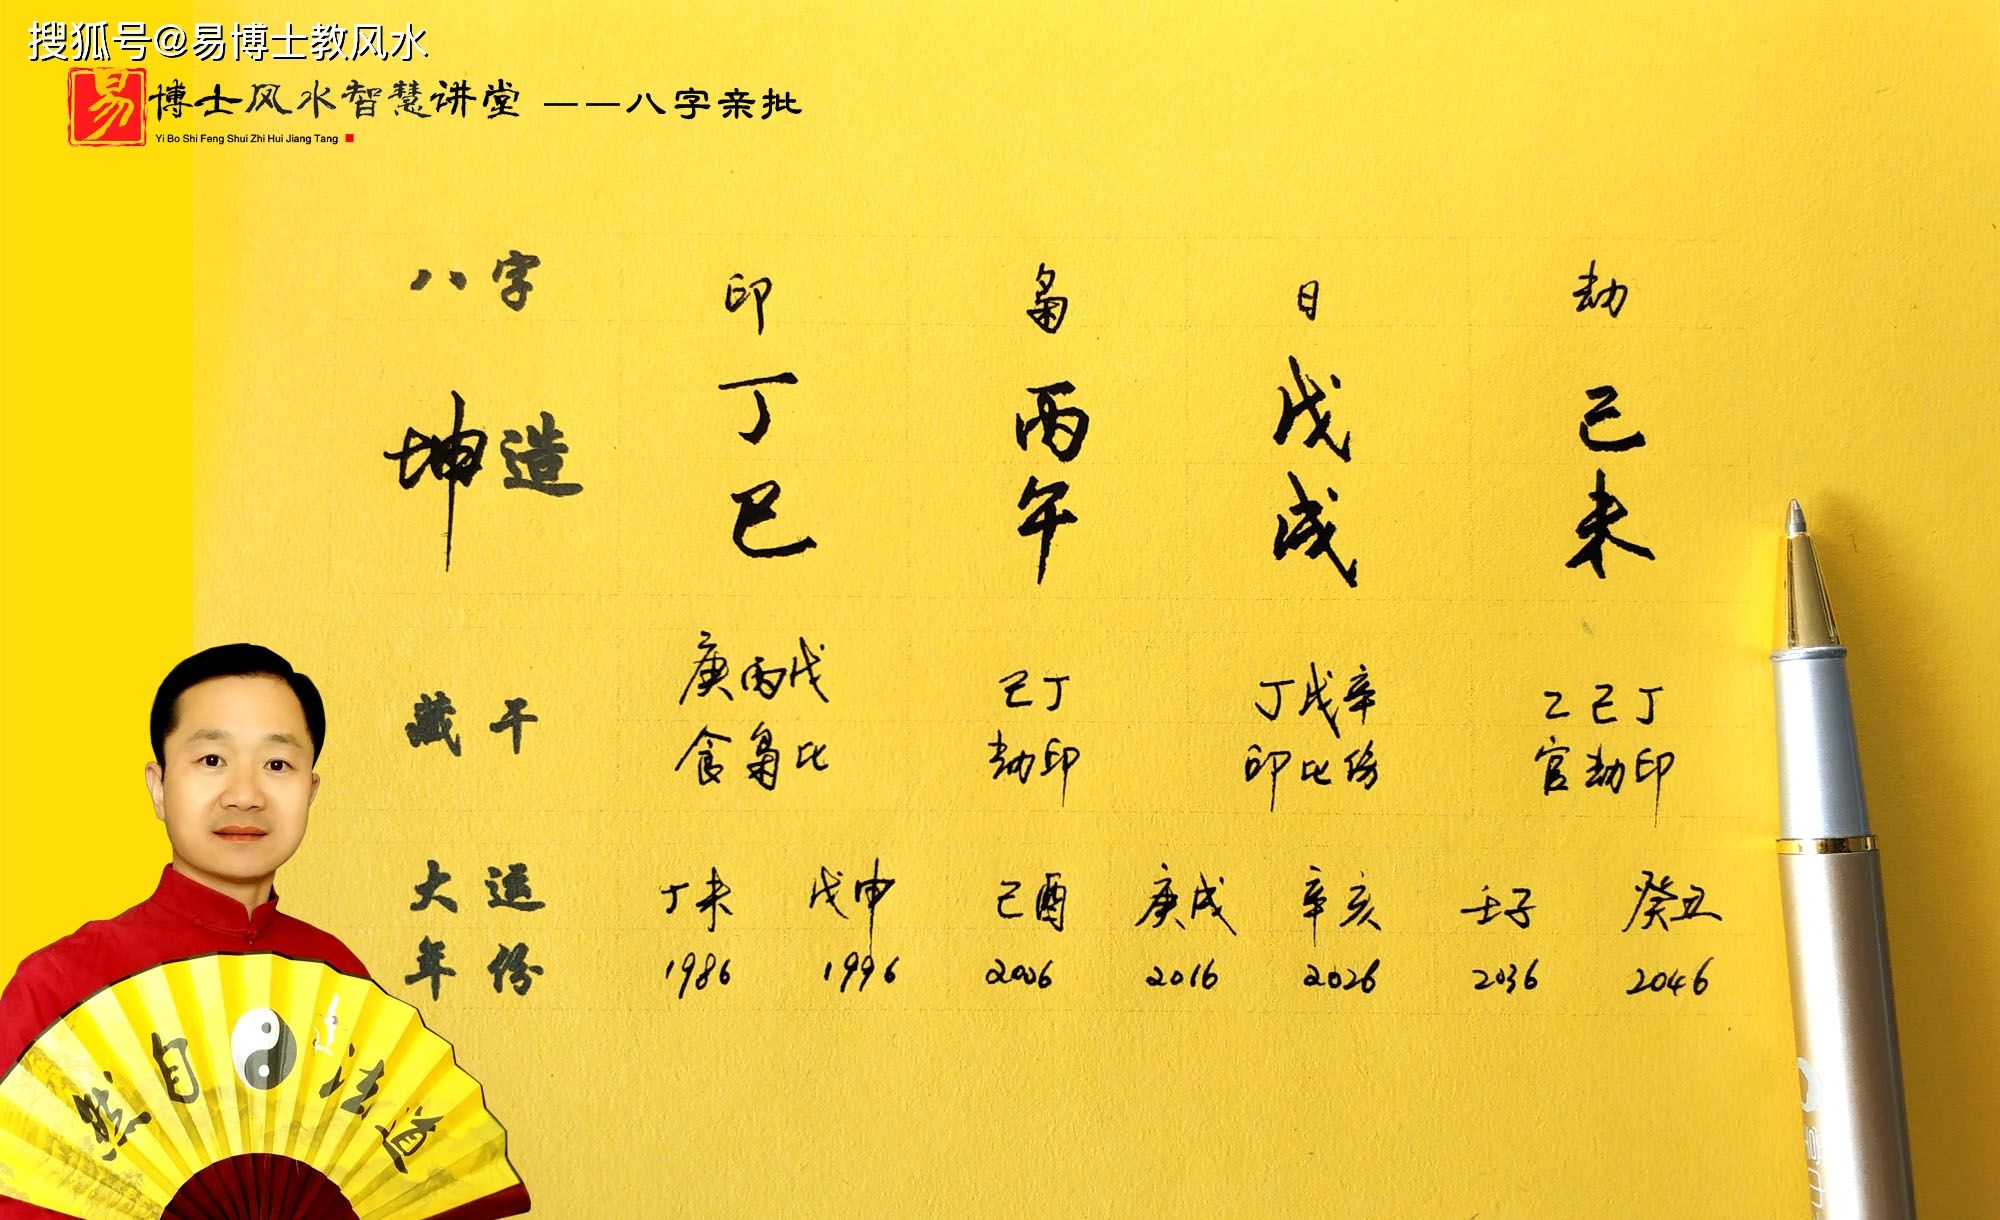 搜狐号@易博士教风水
易博士风水智慧讲堂 ——八字亲批
Yi Bo Shi Feng Shui Zhi Hui Jiang Tang
八字 印 枭 日 劫
坤造 丁 丙 戊 己
巳 午 戌 未
藏干 庚丙戊 己丁 丁戊辛 乙己丁
食枭比 劫印 印比伤 官劫印
大运 丁未 戊申 己酉 庚戌 辛亥 壬子 癸丑
年份 1986 1996 2006 2016 2026 2036 2046
然自法道